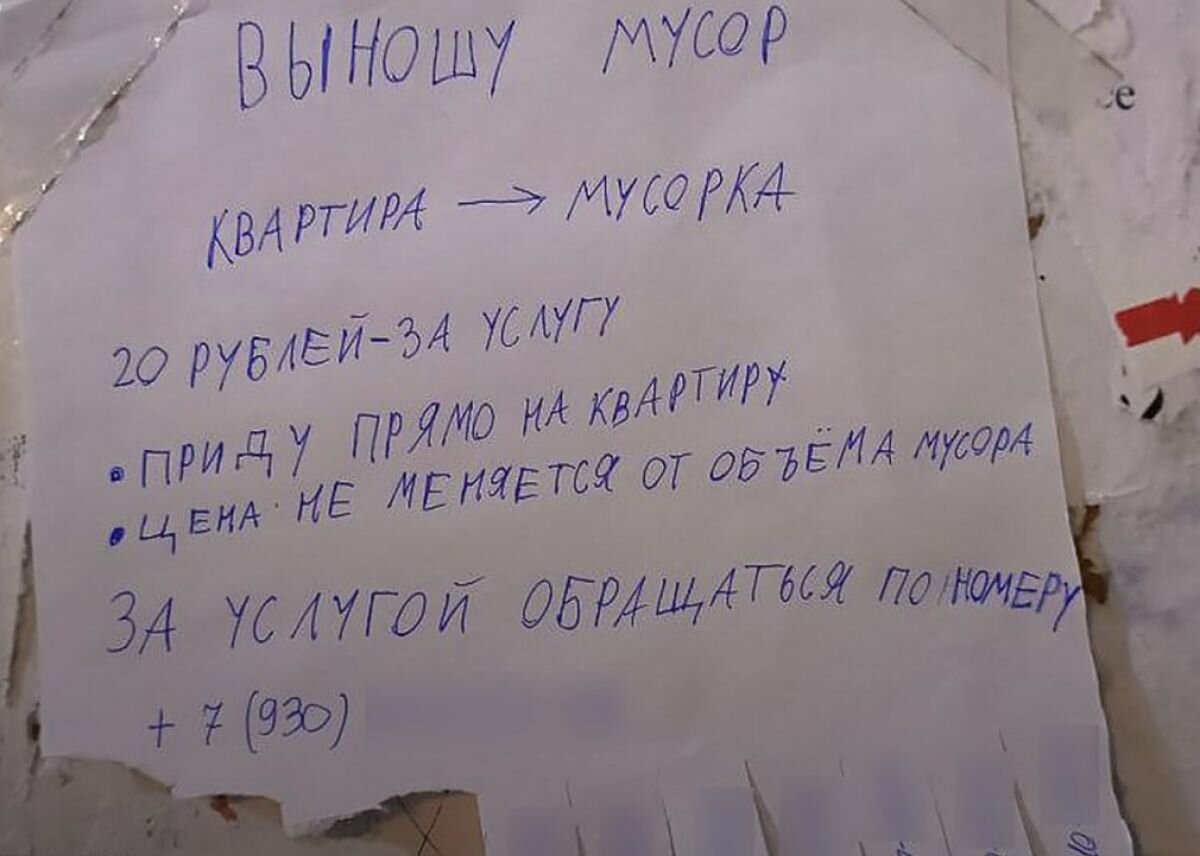 ВЫНОШУ МУСОР
КВАРТИРА → МУСОРКА
20 РУБЛЕЙ-ЗА УСЛУГУ
• ПРИДУ ПРЯМО НА КВАРТИРУ
• ЦЕНА НЕ МЕНЯЕТСЯ ОТ ОБЪЁМА МУСОРА
ЗА УСЛУГОЙ ОБРАЩАТЬСЯ ПО НОМЕРУ
+ 7 (930)